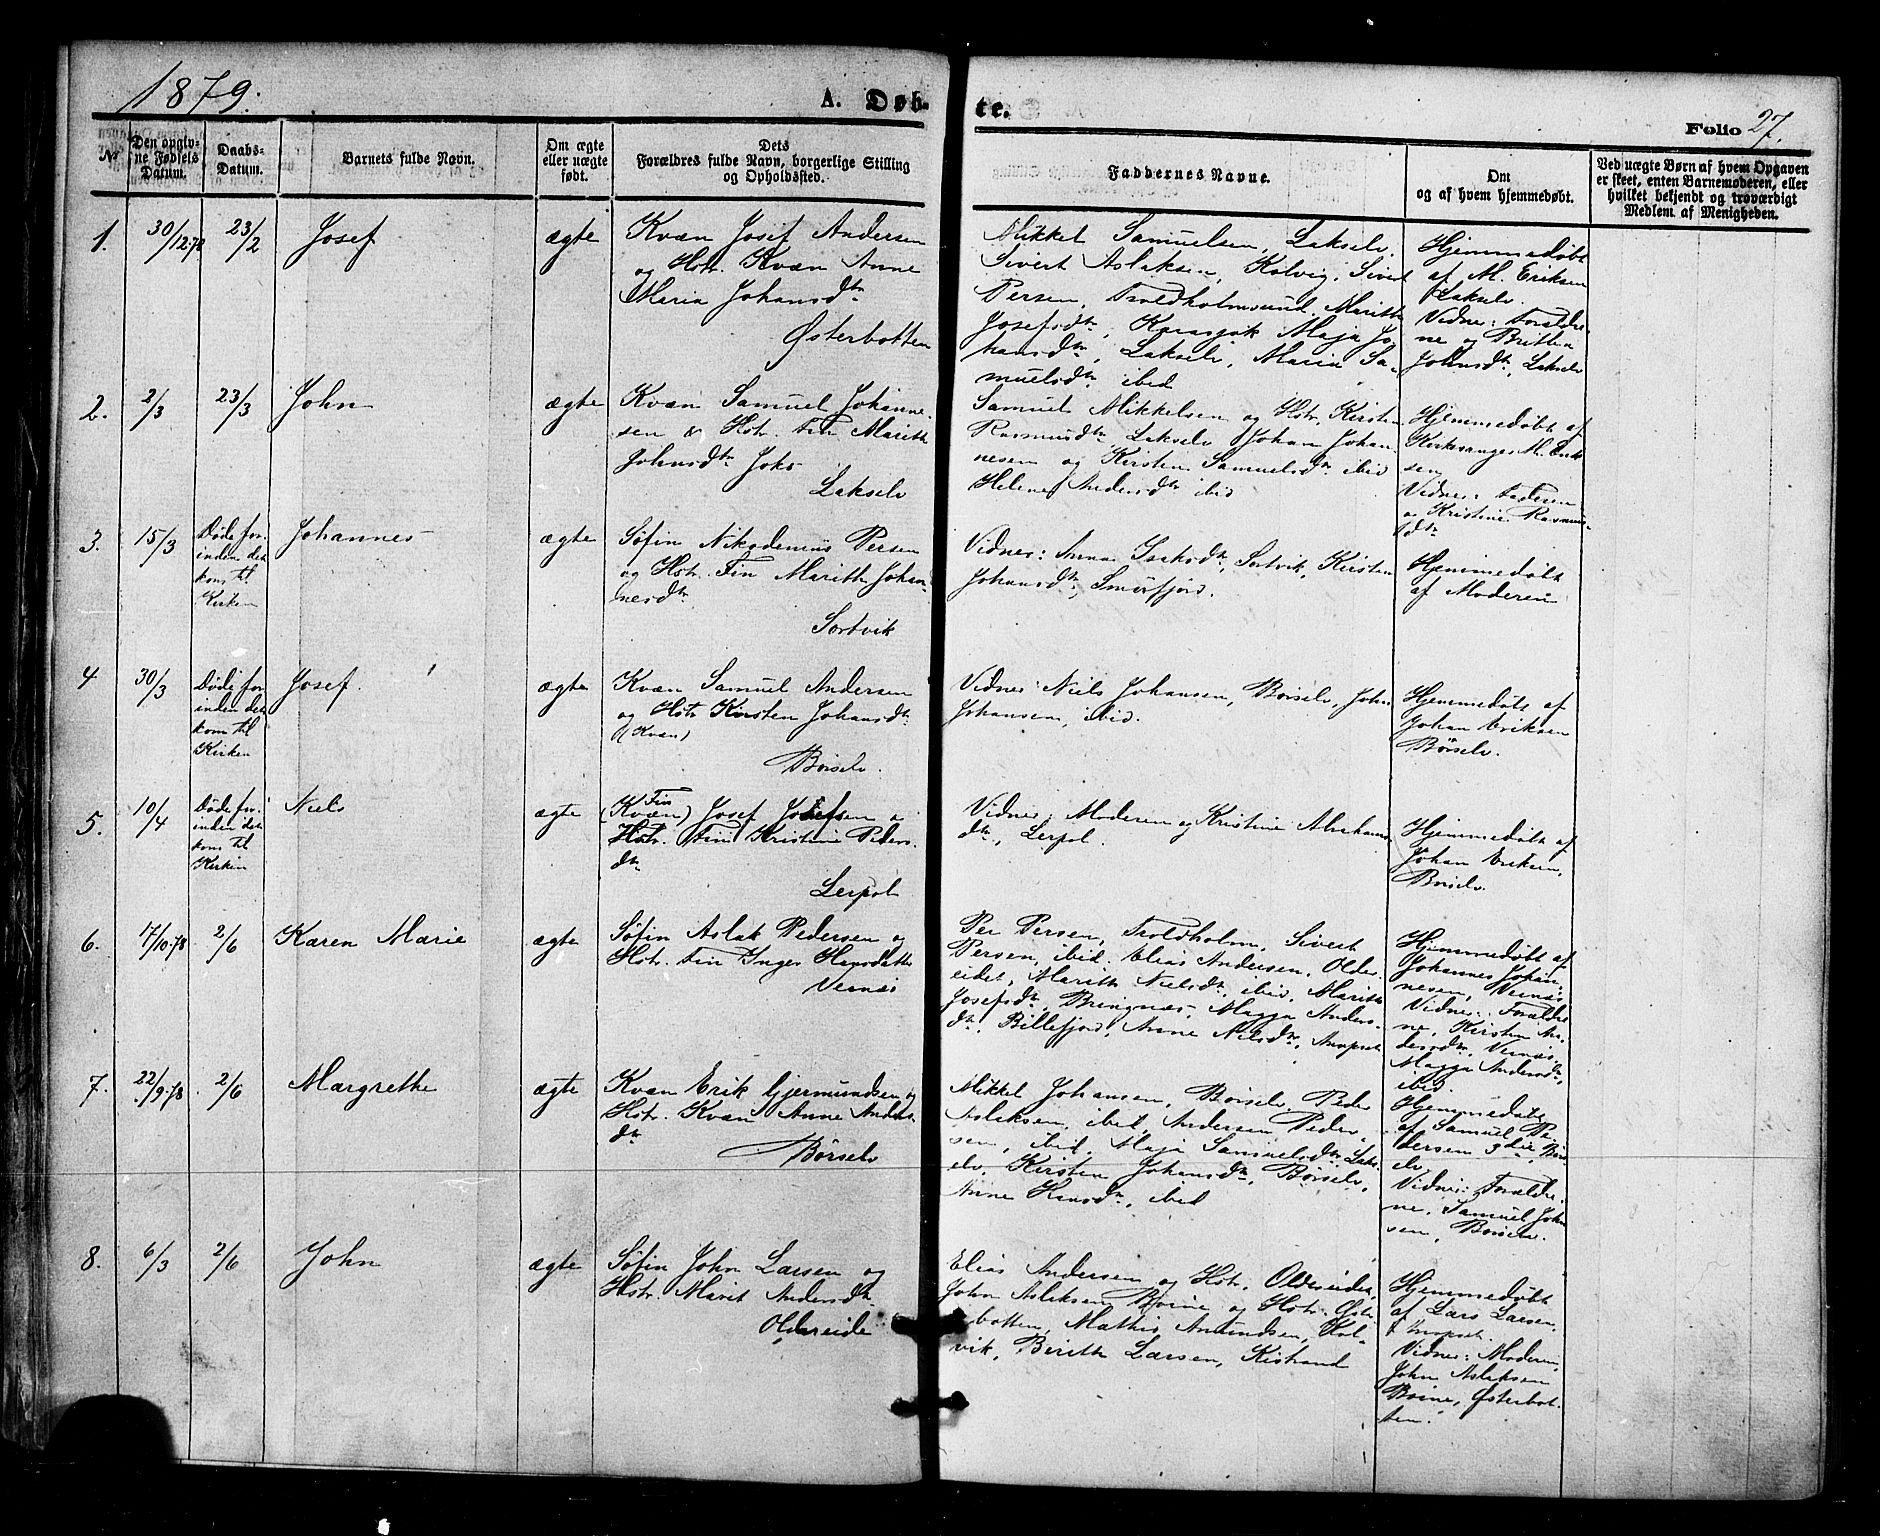 1879.
A. Døb-
te.
Folio 27.
№
Den opgiv-
ne Fødsels
Datum.
Daabs-
Datum.
Barnets fulde Navn.
Om ægte
eller uægte
født.
Dets
Forældres fulde Navn, borgerlige Stilling
og Opholdssted.
Faddernes Navne.
Om
og af hvem hjemmedøbt.
Ved uægte Børn af hvem Opgaven
er skeet, enten Barnemoderen, eller
hvilket bekjendt og troværdigt
Medlem af Menigheden.
1.
30/12 78
23/2
Josef
ægte
Kvæn Josef Andersen
og Hstr. Kvæn Anne
Maria Johansdtr
Østerbotten
Mikkel Samuelsen, Lakselv
Sivert Aslaksen, Kolvig, Sivert
Persen, Troldholmsund, Marith
Josefsdtr, Karasjok Maja Jo
hansdtr, Lakselv, Maria Sa-
muelsdtr ibid
Hjemmedøbt
af M. Eriksen
Lakselv.
Vidner: Forældre
ne og Britta
Johnsdtr, Lakselv
2.
2/3
23/3
John
ægte
Kvæn Samuel Johanne-
sen & Hstr. Fin Marith
Johnsdtr Joks
Lakselv
Samuel Mikkelsen og Hstr. Kirsten
Rasmusdtr, Lakselv Johan Johan-
nesen og Kirsten Samuelsdtr ibid
Helene Andersdtr ibid
Hjemmedøbt af
Kirkesanger M. Erik
sen
Vidner: Faderen
o Kristine Rasmus-
dtr
3.
15/3
Døde for-
inden det
kom til
Kirken
Johannes
ægte
Søfin Nikodemus Persen
og Hstr. Fin Marith Johan-
nesdtr
Sortvik
Vidner: Anna Isaksdtr, Sortvik, Kirsten
Johansdtr, Smørfjord.
Hjemmedøbt
af Moderen
4
30/3
Døde for
inden det
kom til
Kirken
Josef.
ægte
Kvæn Samuel Andersen
og Hstr Kirsten Johansdtr
(Kvæn)
Børselv.
Vidner: Niels Johansen, Børselv, John
Johansen, ibid.
Hjemmedøbt af
Johan Eriksen
Børselv.
5.
10/4
Døde for-
inden det
kom til
Kirken
Niels
ægte
Fin
(Kvæn) Josef Josefsen o
Hstr. Fin Kristine Peders-
dtr
Lerpol
Vidner: Moderen og Kristine Abrahams
dtr, Lerpol.
Hjemmedøbt af
Johan Eriksen,
Børselv.
6.
17/10.78
2/6
Karen Marie
ægte
Søfin Aslak Pedersen og
Hstr. Fin Inger Hansdatter
Veinæs
Per Persen, Troldholm, Sivert
Persen, ibid. Elias Andersen, Older-
eidet, Marith Nielsdtr, ibid, Marith
Josefsdtr, Bringnæs, Magga Anders-
dtr, Billefjord, Anne Nielsdtr,
Hjemmedøbt af
Johannes Johan-
nesen, Veinæs
Vidner: Forældre
ne, Kirsten An-
dersdtr, Veinæs,
Magga Andersdtr,
ibid.
7.
22/9.78
2/6
Margrethe
ægte
Kvæn Erik Gjermundsen og
Hstr. Kvæn Anne Anders-
dtr
Børselv
Mikkel Johansen, Børselv, Peder
Aslaksen, ibid, Andersen Peder-
sen, ibid. Maja Samuelsdtr Laks-
elv, Kirsten Johansdtr, Børselv,
Anne Hansdtr, ibid
Hjemmedøbt
af Samuel Pe
dersen 3die, Børs
elv
Vidner: Forældre-
ne, Samuel John
sen, Børselv.
8.
6/3
2/6
John
ægte
Søfin John Larsen og
Hstr. Marit Andersdtr
Oldereide
Elias Andersen og Hstr. Oldereidet,
John Aslaksen Boine og Hstr. Øster
botten, Mathis Amundsen, Kol-
vik, Berith Larsen, Kistrand
Hjemmedøbt
af Lars Larsen,
Vidner: Moderen,
John Aslaksen
Boine, Østerbot-
ten.